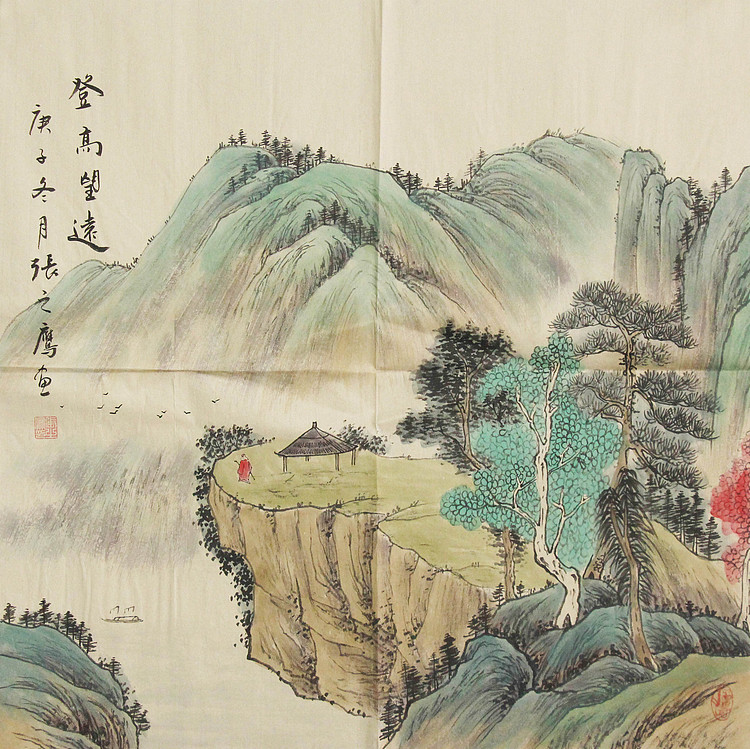 登高望遠
庚子冬月張之鷹画